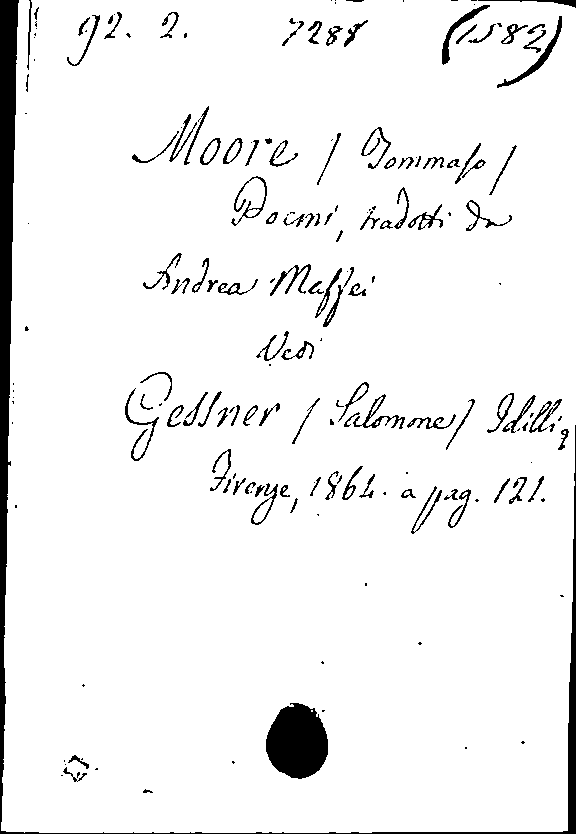 92. 2. 7288 (1582)
Moore / Tommaso /
Poemi, tradotti da
Andrea Maffei
Vedi
Gessner / Salomone / Idilli,
Firenze, 1864. a pag. 121.